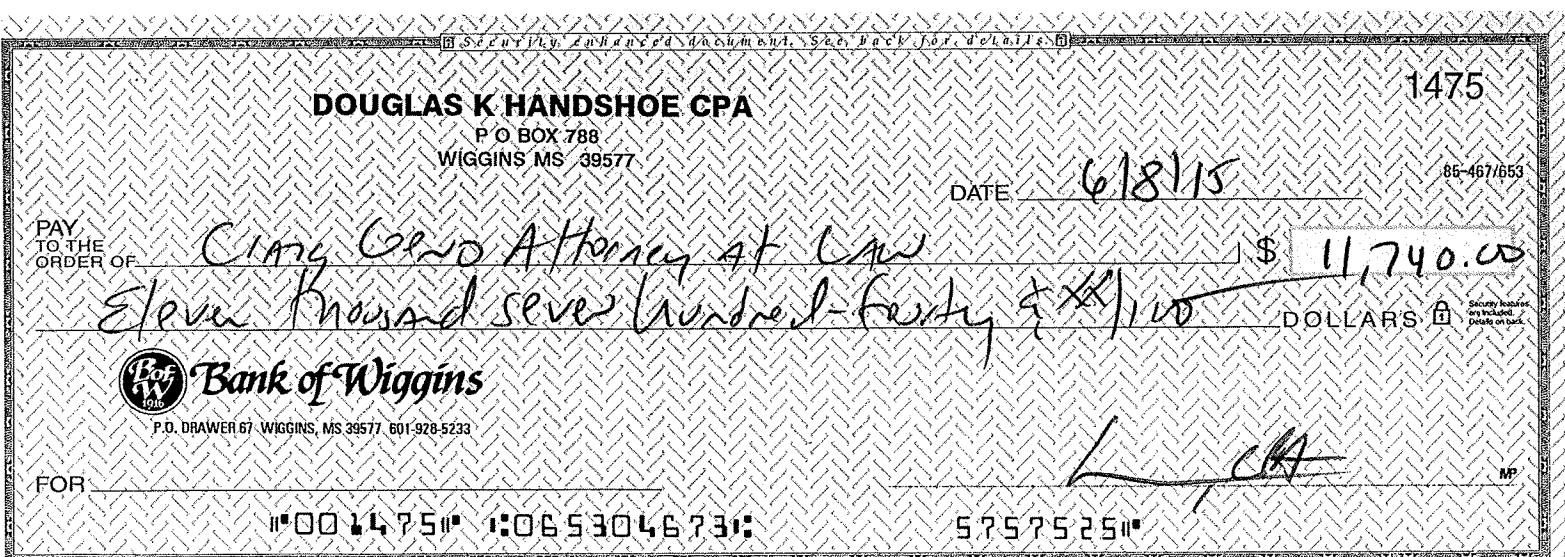 Security enhanced document. See back for details.
1475
DOUGLAS K HANDSHOE CPA
P O BOX 788
WIGGINS MS 39577
85-467/653
DATE 6/8/15
PAY TO THE ORDER OF Craig Geno Attorney At Law $ 11,740.00
Eleven thousand seven hundred-fourty & xx/100 DOLLARS
Security features are included. Details on back.
BofW 1916 Bank of Wiggins
P.O. DRAWER 67 WIGGINS, MS 39577 601-928-5233
FOR
, CPA
MP
⑈001475⑈ ⑆065304673⑆ 5757525⑈